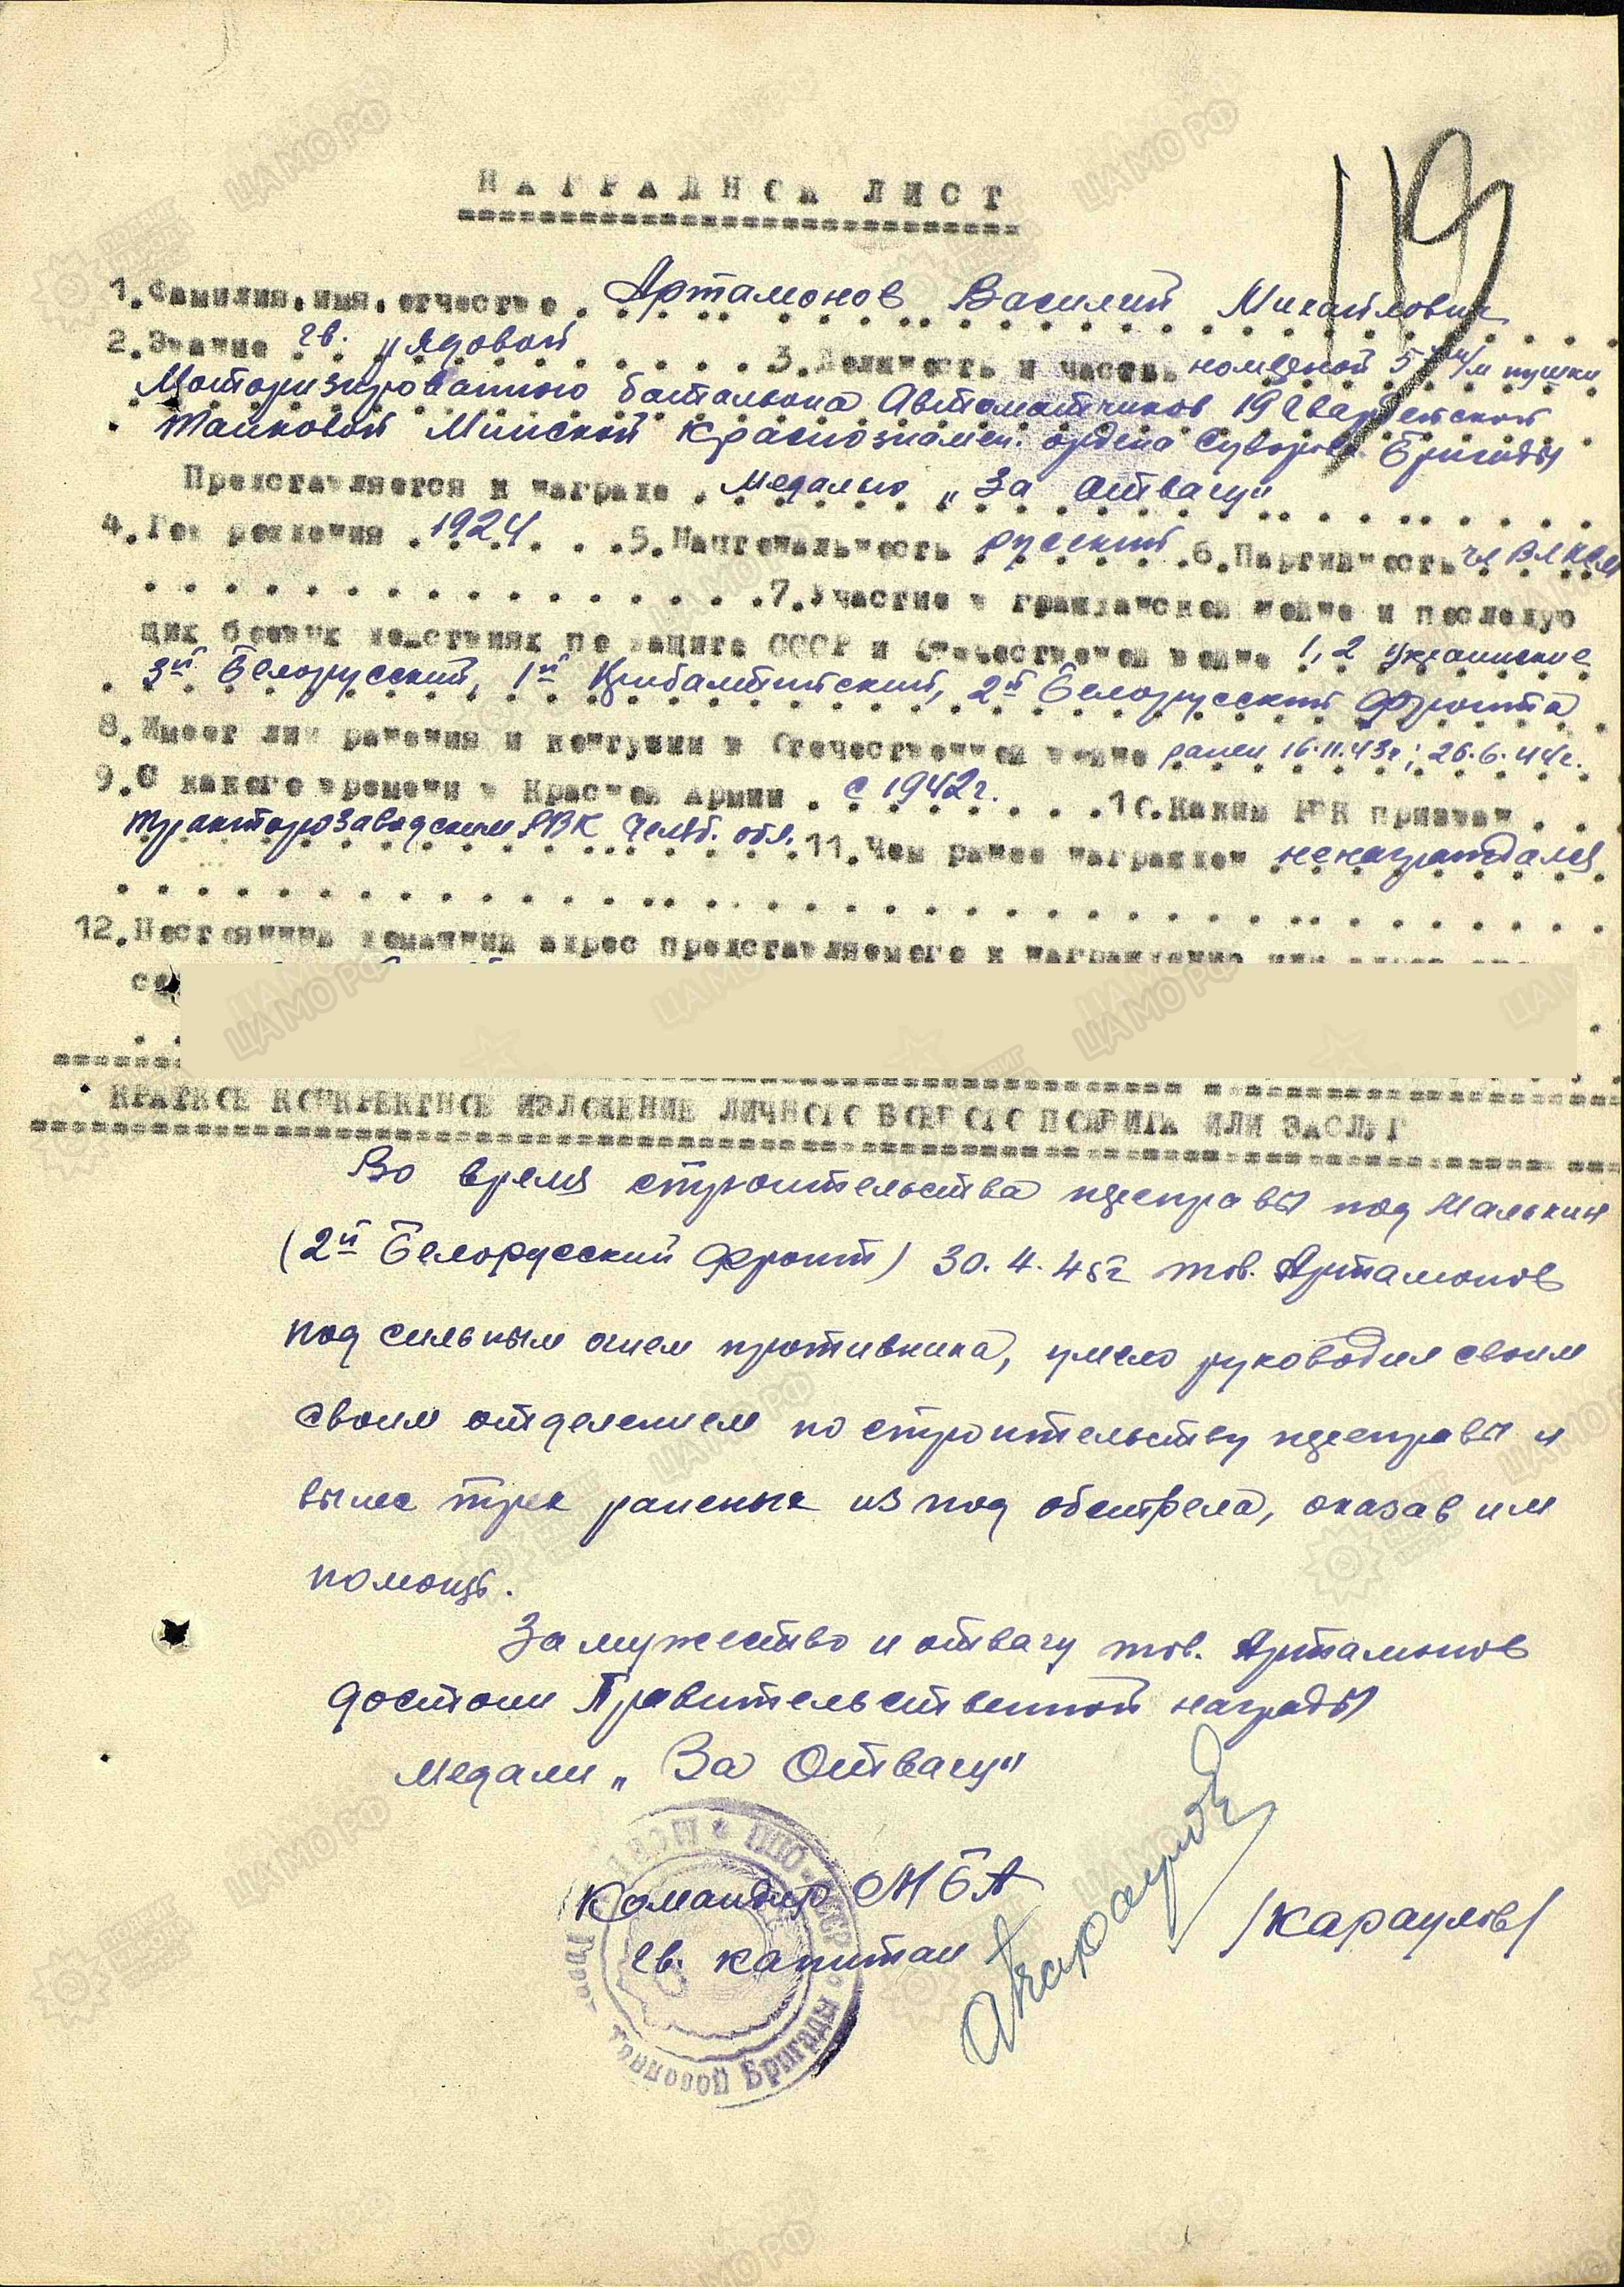 119
НАГРАДНОЙ ЛИСТ
1. Фамилия, имя, отчество Артамонов Василий Михайлович
2. Звание гв. рядовой 3. Должность и часть номерной 57 м/м пушки
Моторизированного батальона Автоматчиков 19 Гвардейской
танковой Минской Краснознамен. ордена Суворова Бригады
Представляется к награде медалью „За Отвагу"
4. Год рождения 1924 5. Национальность русский 6. Партийность чл ВЛКСМ
7. Участие в гражданской войне и последую
щих боевых действиях по защите СССР и Отечественной войне 1, 2 Украинские
3й Белорусский, 1й Прибалтийский, 2й Белорусский фронта
8. Имеет ли ранения и контузии в Отечественной войне ранен 16.11.43г; 26.6.44г.
9. С какого времени в Красной Армии с 1942г. 10. Каким РВК призван
Тракторозаводским РВК Челяб. обл. 11. Чем ранее награжден ненаграждался
12. Постоянный домашний адрес представляемого к награждению или адрес его
КРАТКОЕ КОНКРЕКТНОЕ ИЗЛОЖЕНИЕ ЛИЧНОГО БОЕВОГО ПОДВИГА ИЛИ ЗАСЛУГ
Во время строительства переправы под Малькин
(2й Белорусский фронт) 30.4.45г тов. Артамонов
под сильным огнем противника, умело руководил своим
своим отделением по строительству переправы и
вынес трех раненых из под обстрела, оказав им
помощь.
За мужество и отвагу тов. Артамонов
достоин Правительственной награды
медали „За Отвагу"
Командир МБА
гв. капитан /Караулов/
НКО * СССР
Танковой Бригады
ЦА МО РФ